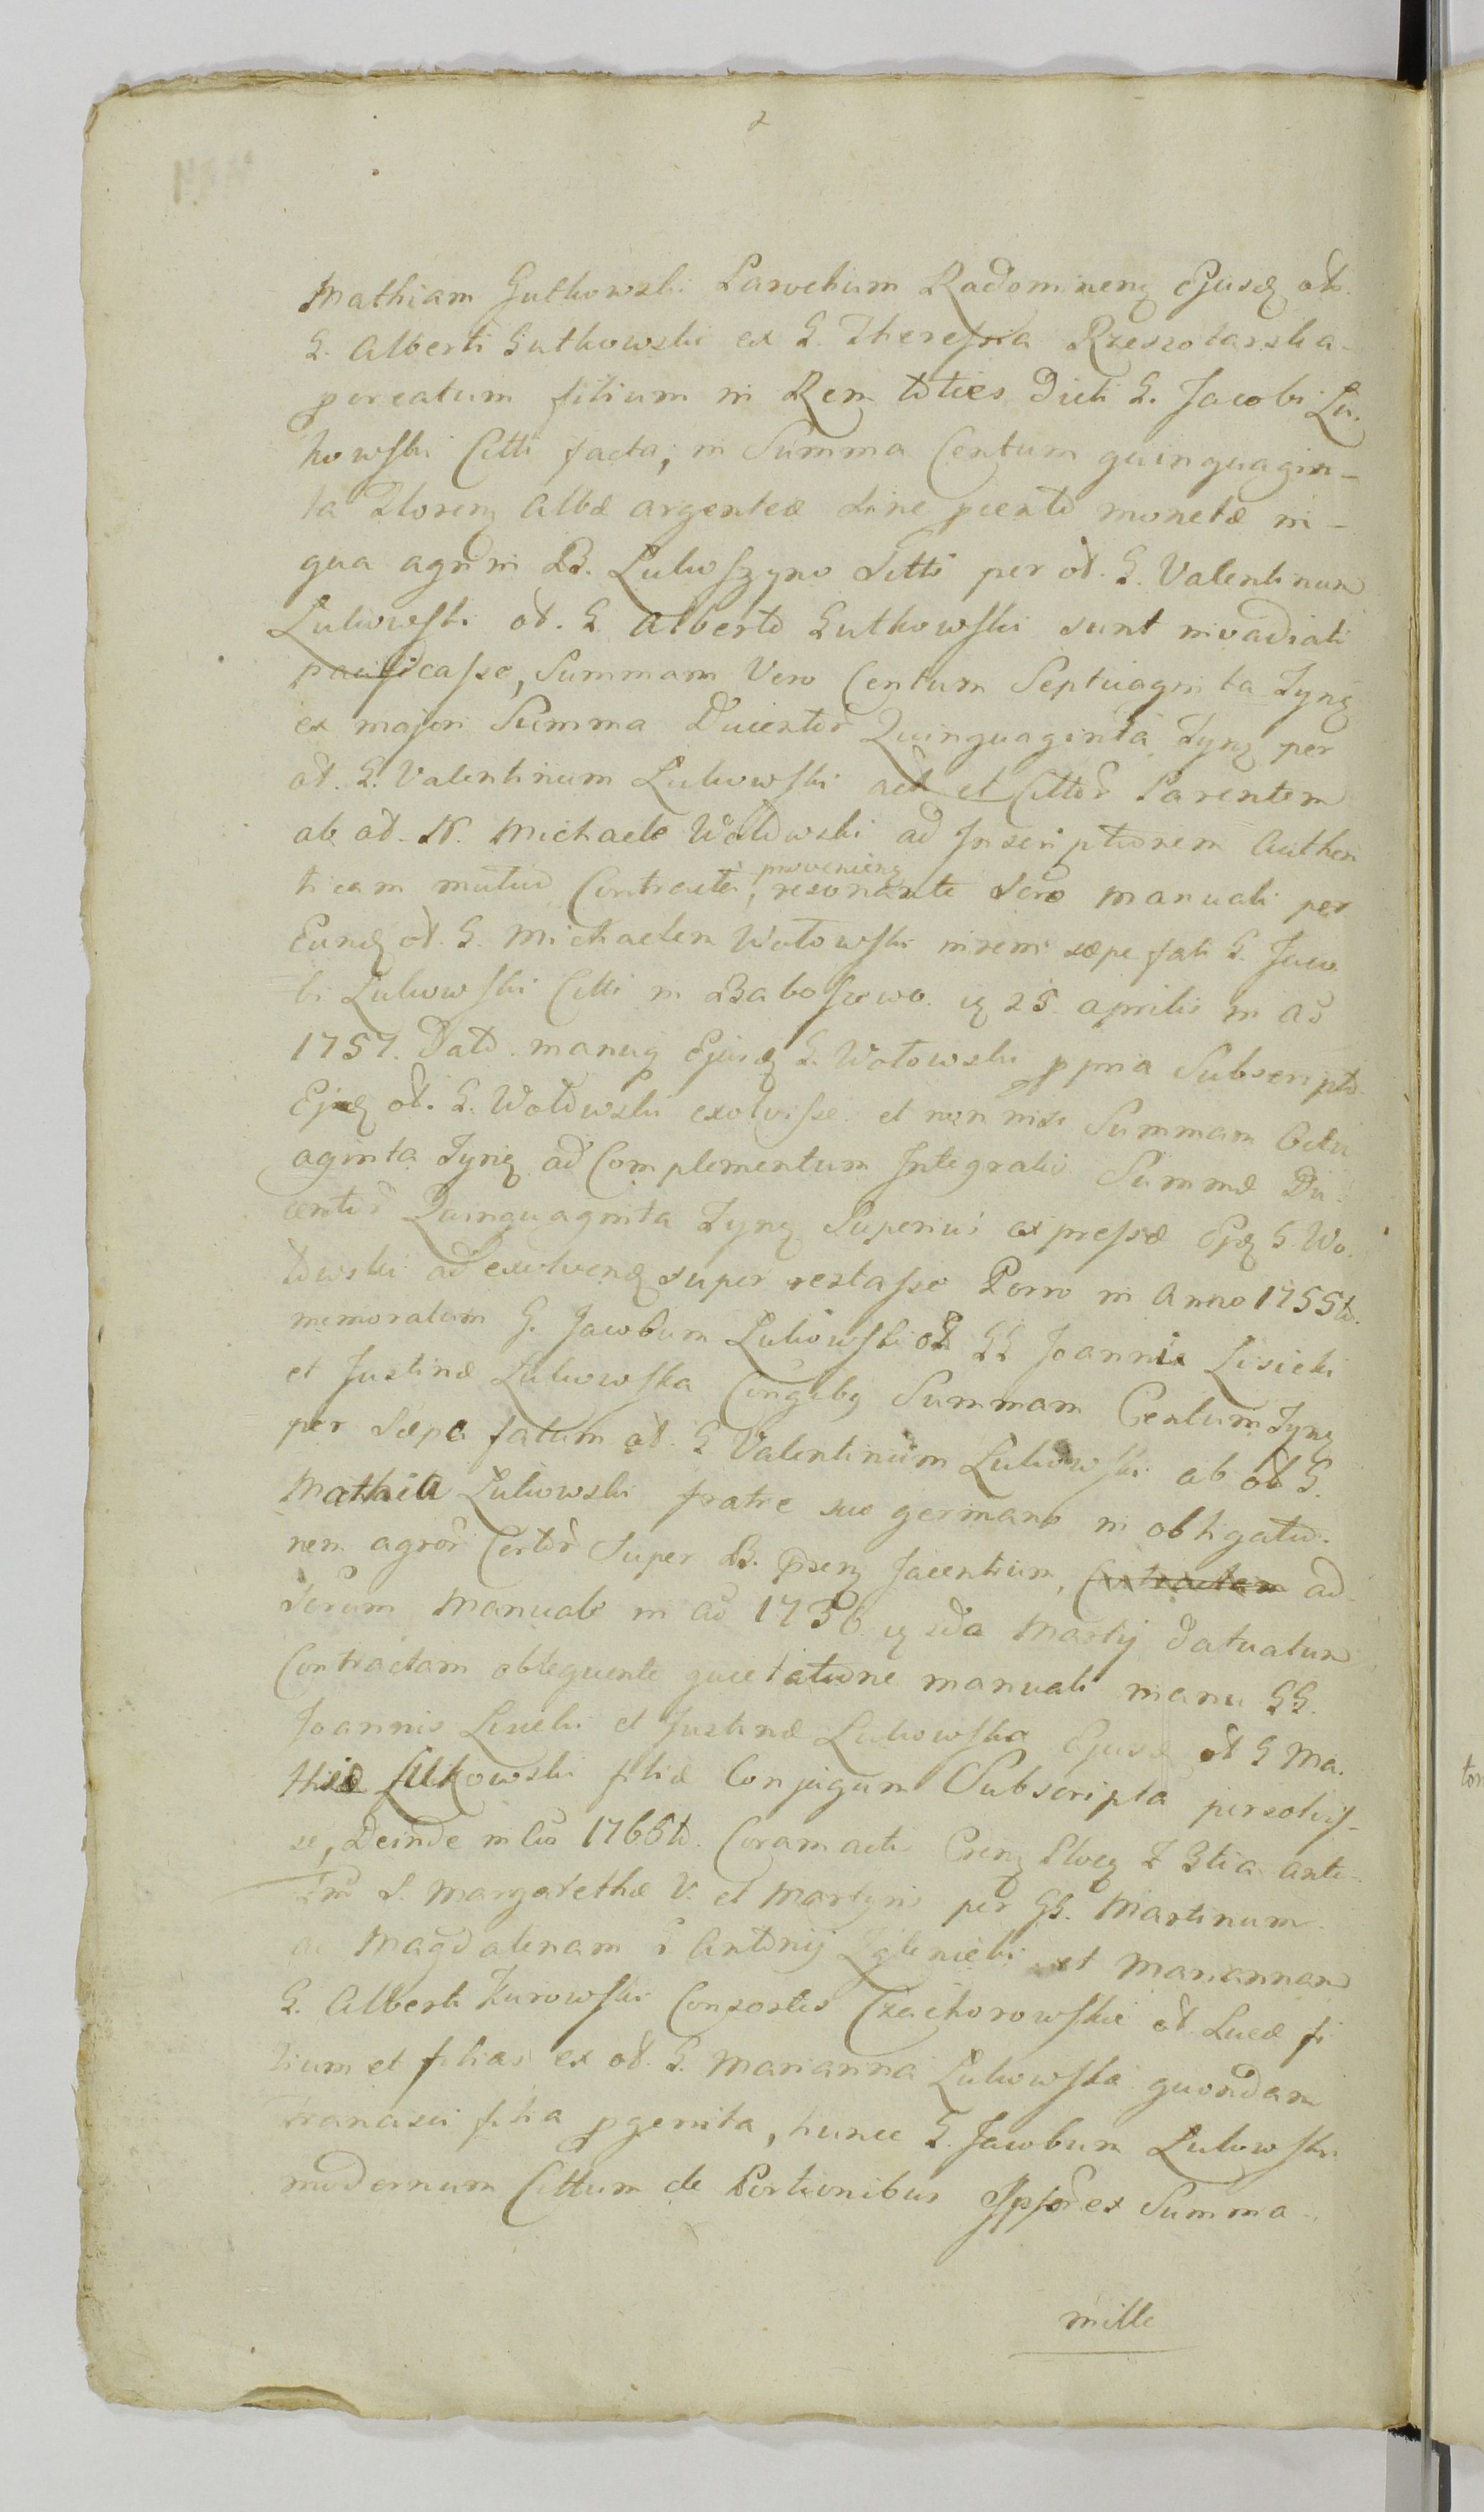 2
Mathiam Gutkowski Parochum Radominens Ejusd od.
G. Alberti Gutkowski ex G. Theresia Rzeszotarska
pcreatum filium in Rem toties Dicti G. Jacobi Lu-
kowski Citti facta, in Summa Centum quinquagin-
ta Floren albæ argenteæ sine monetæ in
qua agri in B. Lukoszyno Sitti per od. G. Valentinum
Lukowski od. G. Alberto Gutkowski sunt invadiati
pacificasse, Summam Vero Centum Septuaginta Tynf
ex majori Summa Ducentor Quinquaginta Tynf per
od. G. Valentinum Lukowski act et Cittor Parentem
ab od. N. Michaele Wołowski ad Inscriptionem Authen
ticam mutuo Contracta, proveniens resonante Scro manuali per
Eund od. G. Michaelem Wołowski in rem sæpe fati G. Jaco
bi Lukowski Citti in Baboszewo. 25 aprilis in ao
1757. Dato. manuq Ejusd G. Wołowski ppria Subscripto
Ejusd od. G. Wołowski exolvisse et non nisi Summam Octu
aginta Tynf ad Complementum Integralis Summæ Du-
centor Quinquaginta Tynf Superius expressæ Ejusd G. Wo-
łowski ad exolvend super restasse Porro in Anno 1755to.
memoratum G. Jacobum Lukowski od GG Joannis Lisicki
et Justinæ Lukowska Conjgibus Summam Centum Tynf
per Sæpe fatum od. G Valentinum Lukowski ab od G.
Mathia Lukowski fratre suo germano in obligatio-
nem agror Certor Super B. Jacentium, Contractam ad
Scrum Manuale in ao 1736 Martij Datuatum
Contractam obsequente quietatione manuali manu GG.
Joannis Lisicki et Justinæ Lukowska Ejusd od G Ma-
thiæ Lukowski filiæ Conjugum Subscripta persolvis-
se, Deinde in Ao 1766to. Coram actis ante
S. Margarethæ V. et Martyris per GG. Martinum
ac Magdalenam G Antonij Zglenicki et Mariannam
G. Alberti Kurowski Consortes Czachorowskie od Lucæ fi
lium et filias ex od. G. Marianna Lukowska quondam
Francisci filia pgenita, hunce G. Jacobum Lukowski
modernum Cittum de Portionibus Ipsor ex Summa
mille